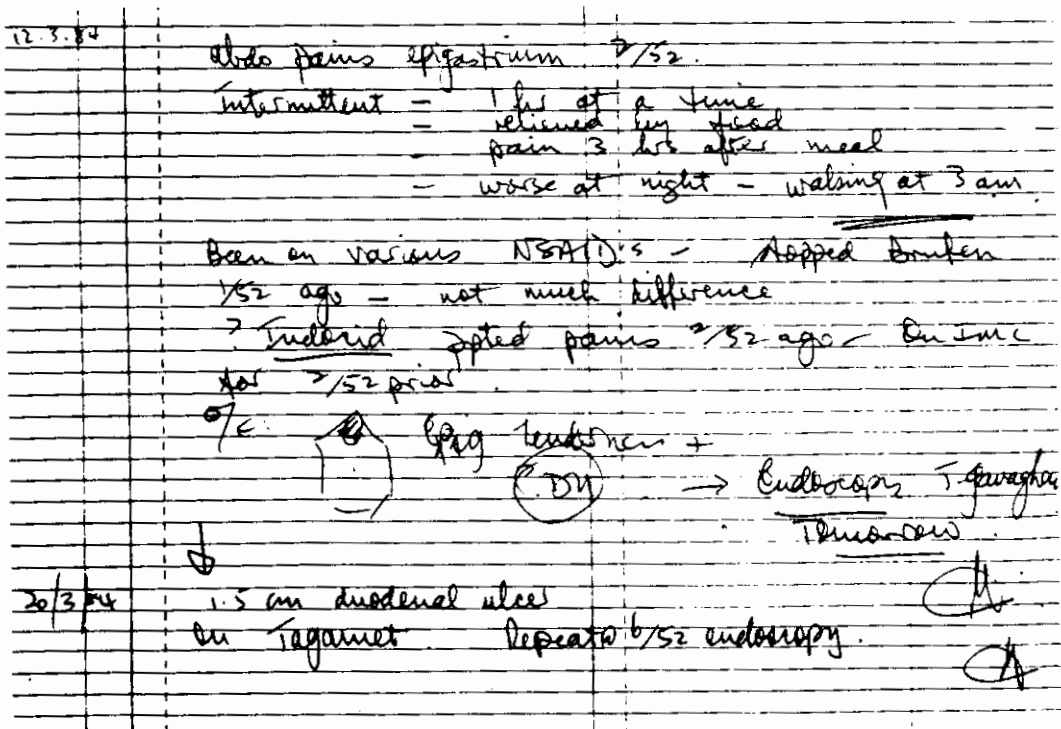 12.3.84
abdo pains epigastrium 2/52.
Intermittent - 1 hr at a time
- relieved by food
pain 3 hrs after meal
- worse at night - waking at 3 am
Been on various NSAID's - stopped Brufen
1/52 ago - not much difference
? Indocid ppted pains 2/52 ago - On
for 2/52 prior.
O/E Epig tenderness +
? DU → Endoscopy T. Gavaghan
Tomorrow.
20/3/84 1.5 cm duodenal ulcer
On Tagamet Repeat 6/52 endoscopy.